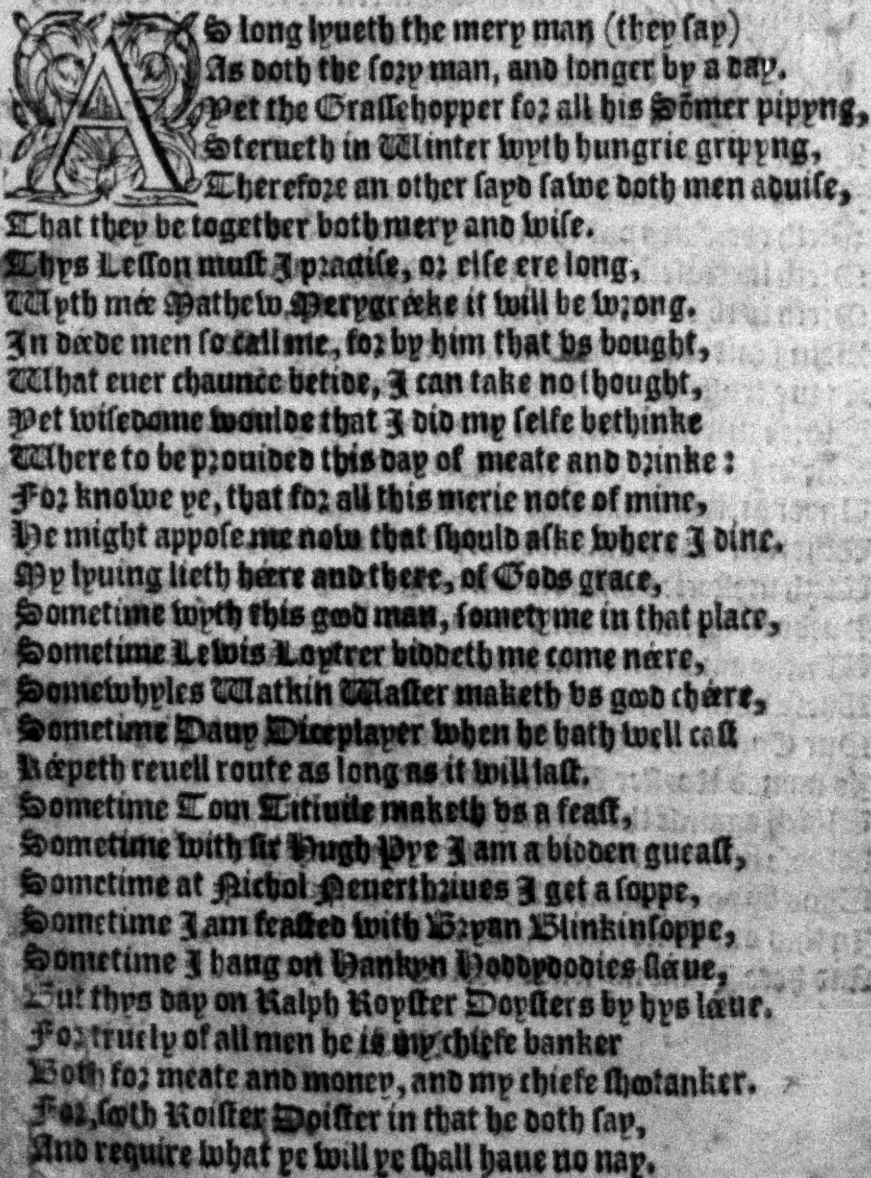 AS long lyueth the mery man (they say)
As doth the sory man, and longer by a day.
Yet the Grassehopper for all his Sōmer pipyng,
Sterueth in Winter wyth hungrie gripyng,
Therefore an other sayd sawe doth men aduise,
That they be together both mery and wise.
Thys Lesson must I practise, or else ere long,
Wyth mée Mathew Merygréeke it will be wrong.
In déede men so call me, for by him that vs bought,
What euer chaunce betide, I can take no thought,
Yet wisedome woulde that I did my selfe bethinke
Where to be prouided this day of meate and drinke:
For knowe ye, that for all this merie note of mine,
He might appose me now that should aske where I dine.
My lyuing lieth héere and there, of Gods grace,
Sometime wyth this good man, sometyme in that place,
Sometime Lewis Loytrer biddeth me come néere,
Somewhyles Watkin Waster maketh vs good chéere,
Sometime Dauy Diceplayer when he hath well cast
Kéepeth reuell route as long as it will last.
Sometime Tom Titiuile maketh vs a feast,
Sometime with sir Hugh Pye I am a bidden gueast,
Sometime at Nichol Neuerthriues I get a soppe,
Sometime I am feasted with Bryan Blinkinsoppe,
Sometime I hang on Hankyn Hoddydodies sléeue,
But thys day on Ralph Royster Doysters by hys léeue.
For truely of all men he is my chiefe banker
Both for meate and money, and my chiefe shootanker.
For, sooth Roister Doister in that he doth say,
And require what ye will ye shall haue no nay.